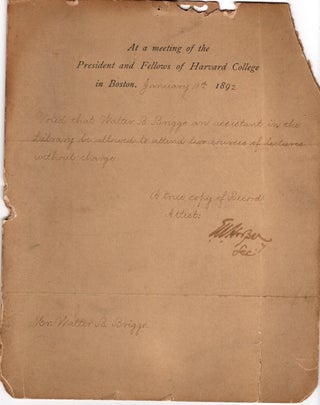 At a meeting of the
President and Fellows of Harvard College
in Boston, January 11th 1892
Voted that Walter B. Briggs an assistant in the
Library be allowed to attend two courses of lectures
without charge
A true copy of Record
Attest:
Sec
Mr. Walter B. Briggs